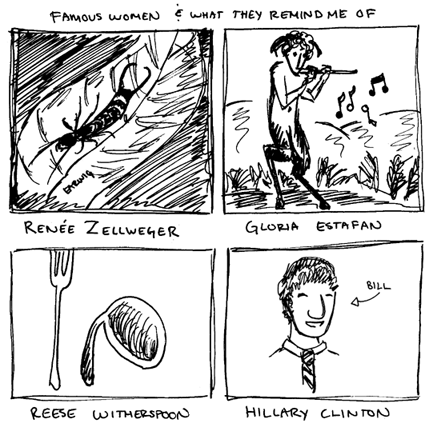 FAMOUS WOMEN & WHAT THEY REMIND ME OF
EARWIG
RENÉE ZELLWEGER
GLORIA ESTAFAN
BILL
REESE WITHERSPOON
HILLARY CLINTON